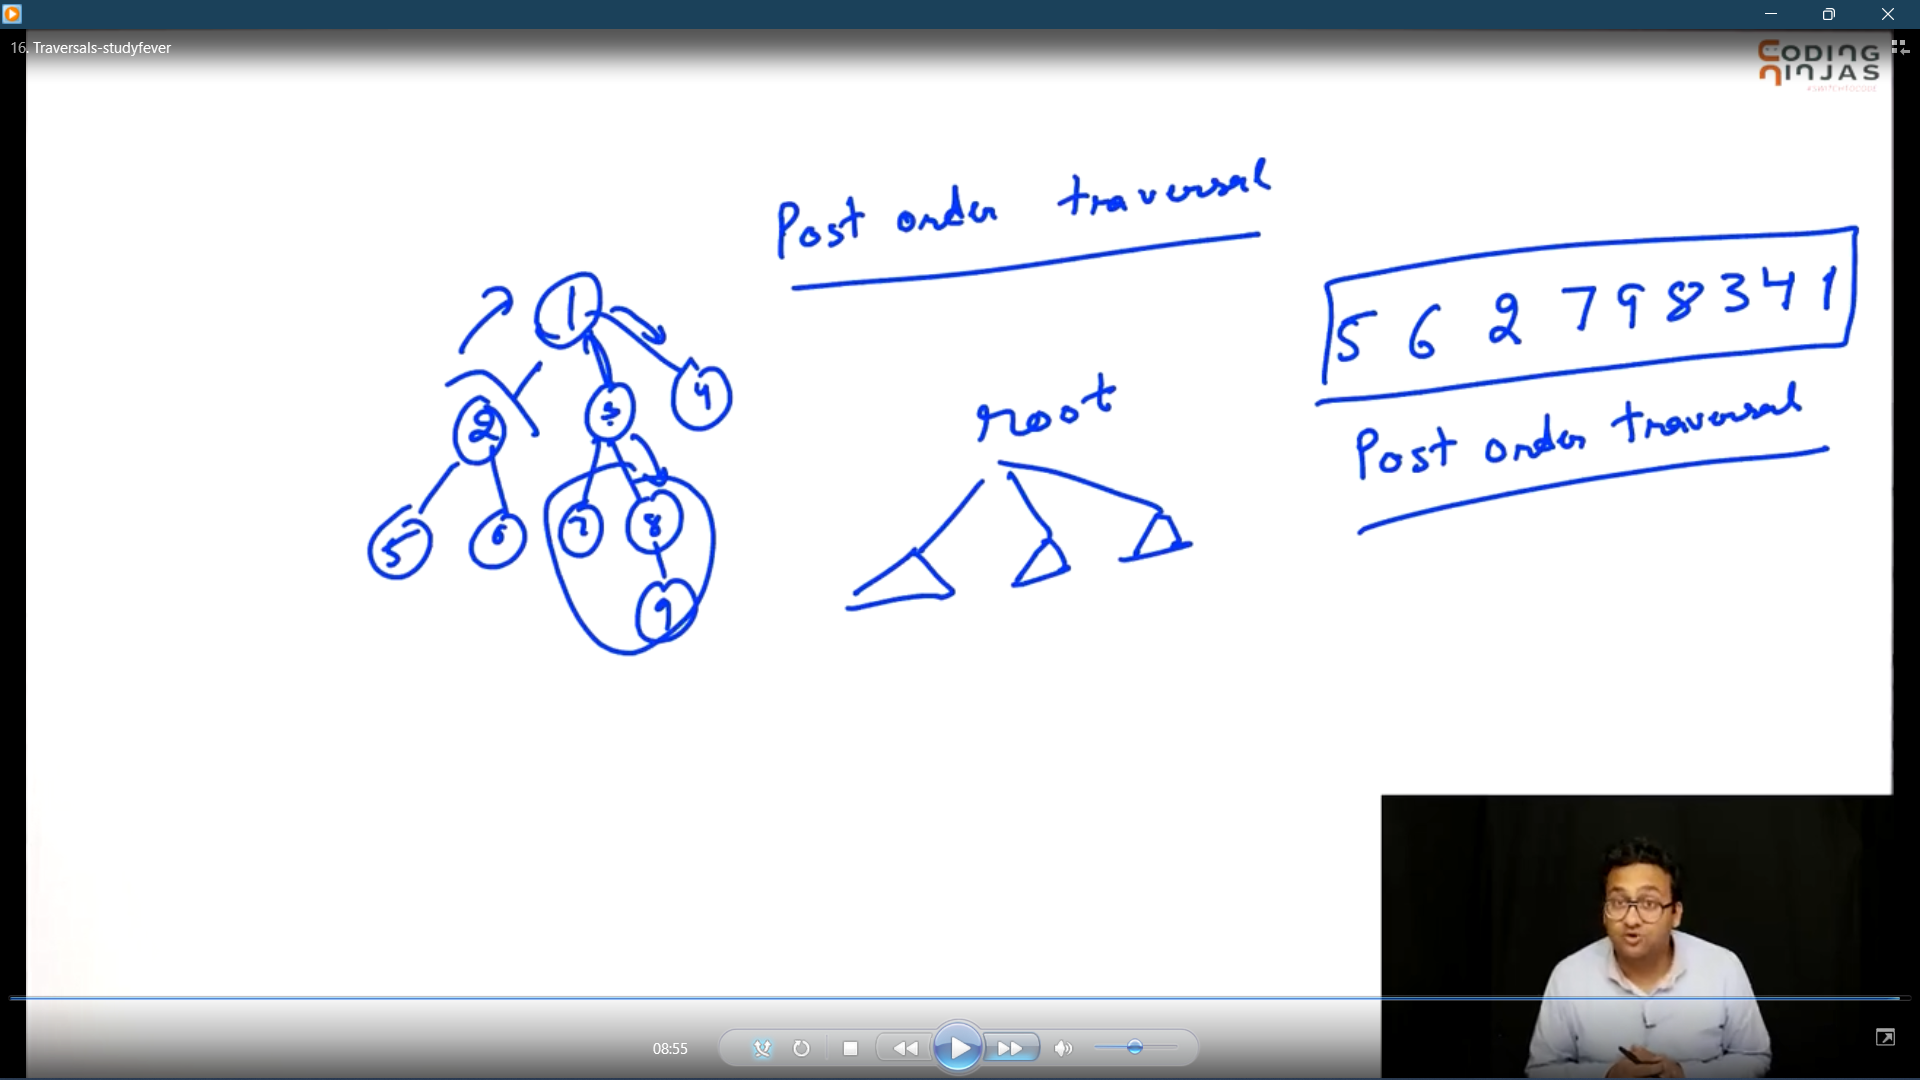 16. Traversals-studyfever
CODING
NINJAS
#SWITCHTOCODE
Post order traversal
1
2 3 4
5 6 7 8
9
root
5 6 2 7 9 8 3 4 1
Post order traversal
08:55